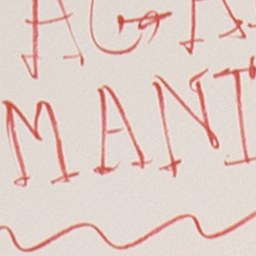 AGA
MANI